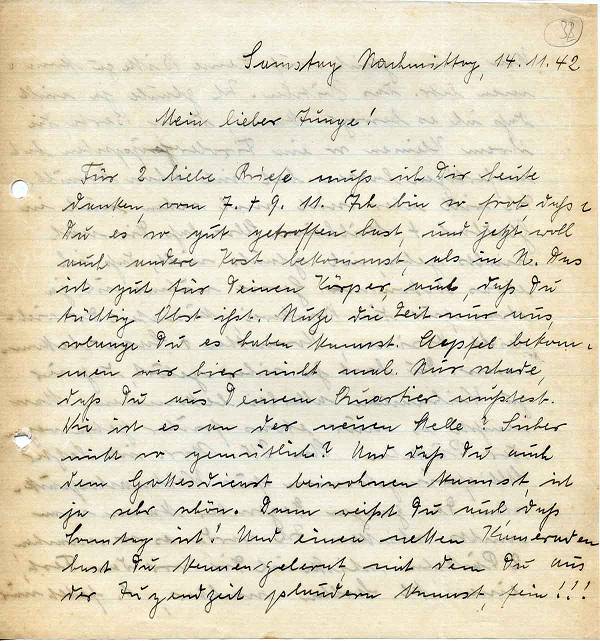 32
Samstag Nachmittag, 14.11.42
Mein lieber Junge!
Für 2 liebe Briefe muß ich Dir heute
danken, vom 7. + 9. 11. Ich bin so froh, daß
Du es so gut getroffen hast, und jetzt wohl
auch andere Kost bekommst, als in R. Das
ist gut für Deinen Körper, auch, daß Du
tüchtig Obst ißt. Nutze die Zeit nur aus,
solange Du es haben kannst. Aepfel bekom-
men wir hier nicht mal. Nur schade,
daß Du aus Deinem Quartier mußtest.
Wie ist es an der neuen Stelle? Sicher
nicht so gemütlich? Und daß Du auch
dem Gottesdienst beiwohnen kannst, ist
ja sehr schön. Dann weißt Du auch daß
Sonntag ist! Und einen netten Kameraden
hast Du kennen gelernt mit dem Du aus
der Jugendzeit plaudern kannst, fein!!!